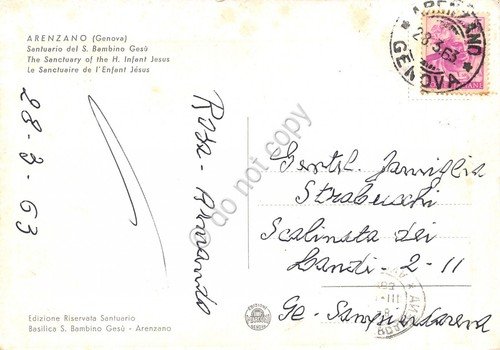 ARENZANO (Genova)
Santuario del S. Bambino Gesù
The Sanctuary of the H. Infant Jesus
Le Sanctuaire de l'Enfant Jésus
28-3-63
Rosa - Armando
do not copy
ARENZANO
28.3.63
GENOVA
Gentil. Famiglia
Strabucchi
Scalinata dei
Landi - 2 - 11
Ge - Sampierdarena
Edizione Riservata Santuario
Basilica S. Bambino Gesù - Arenzano